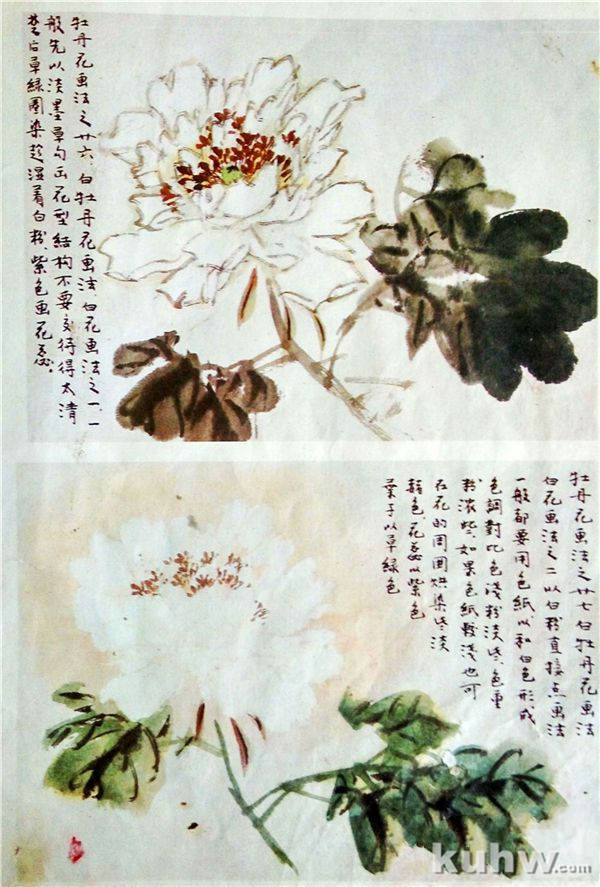 牡丹花画法之廿六、白牡丹花画法、白花画法之一、一
般先以淡墨草勾出花型结构不要交待得太清
楚后草绿圈染趁湿着白粉紫色画花蕊。
牡丹花画法之廿七白牡丹花画法
白花画法之二以白粉直接点画法
一般都要用色纸以和白色形成
色調對比色浅粉淡些、色重
粉浓些、如果色纸较浅也可
在花的周围烘染些淡
赭色、花蕊以紫色
葉子以草绿色
kuhw.com